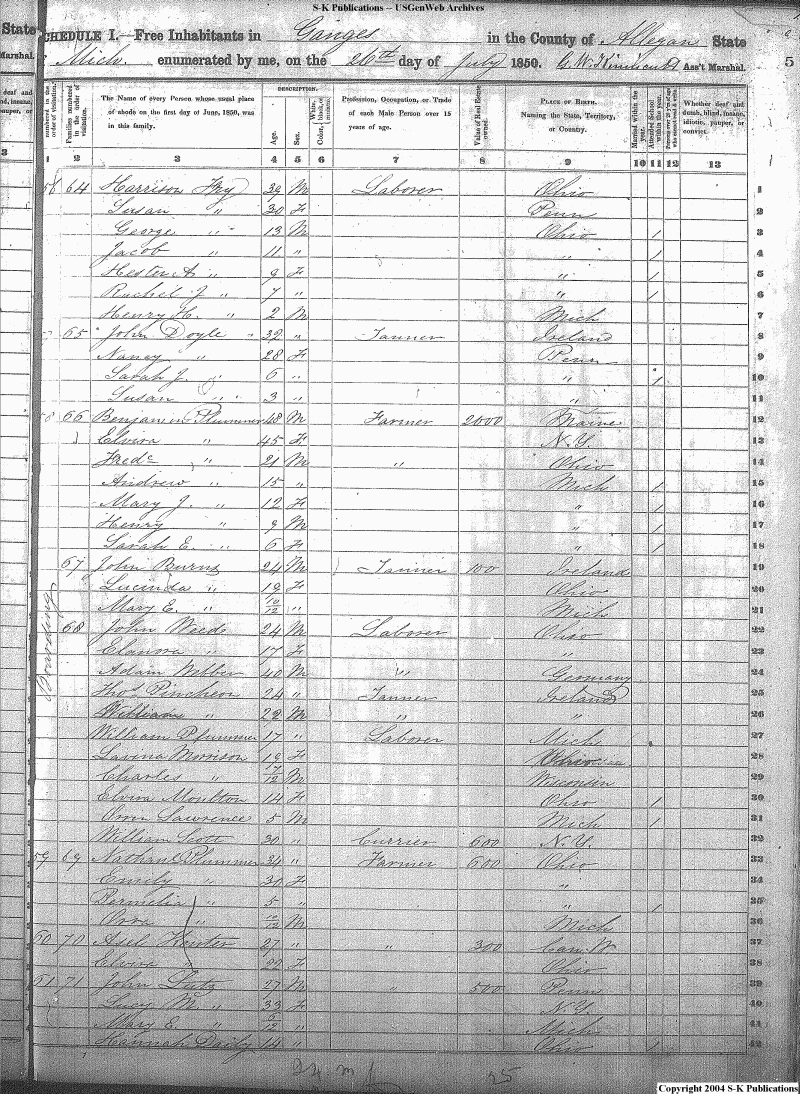 S-K Publications -- USGenWeb Archives
State
SCHEDULE I.—Free Inhabitants in Ganges in the County of Allegan State
Marshal.
Mich. enumerated by me, on the 26th day of July 1850. Ass't Marshal. 5
DESCRIPTION.
The Name of every Person whose usual place of abode on the first day of June, 1850, was in this family.
Age.
Sex.
Profession, Occupation, or Trade of each Male Person over 15 years of age.
Value of Real Estate owned.
PLACE OF BIRTH. Naming the State, Territory, or Country.
Married within the year.
Attended School within the year.
Whether deaf and dumb, blind, insane, idiotic, pauper, or convict.
3 1 2 3 4 5 6 7 8 9 10 11 12 13
58 64 Harrison Fry 39 M Laborer Ohio 1
Susan " 30 F Penn 2
George " 13 M Ohio 1 3
Jacob " 11 " " 1 4
Hester A " 9 F " 1 5
Rachel J " 7 " " 1 6
Henry H. " 2 M Mich 7
65 John Doyle " 32 " Tanner Ireland 8
Nancy " 28 F Penn 9
Sarah J. " 6 " " 1 10
Susan " 3 " " 11
58 66 Benjamin Plummer 48 M Farmer 2000 Maine 12
Elvira " 45 F N.Y. 13
Fredc " 21 M " Ohio 14
Andrew " 15 " Mich 1 15
Mary J. " 12 F " 1 16
Henry " 9 M " 1 17
Sarah E. " 6 F " 1 18
67 John Burns 24 M Tanner 100 Ireland 19
Lucinda " 19 F Ohio 20
Mary E. " 10/12 " Mich 21
Boarding
68 John Weed 24 M Laborer Ohio 22
Elanora " 17 F " 23
Adam Webber 40 M " Germany 24
Thos Pincheon 24 " Tanner Ireland 25
William " 22 M " " 26
William Plummer 17 " Laborer Mich 27
Lavina Morrison 19 F Ohio 28
Charles " M Wisconsin 29
Elvira Moulton 14 F Ohio 1 30
Orrin Lawrence 5 M Mich 1 31
William Scott 30 " Currier 600 N.Y. 32
59 69 Nathan Plummer 34 " Farmer 600 Ohio 33
Emily " 30 F " 34
Permelia " 5 " " 1 35
" 10/12 M Mich 36
60 70 Asel 27 " " 300 Can. W. 37
Elvira " 22 F Ohio 38
61 71 John Lutz 27 M " 500 Penn 39
Lucy M. " 33 F N.Y. 40
Mary E. " 6/12 " Mich 41
Hannah Daily 14 " Ohio 1 42
25
Copyright 2004 S-K Publications